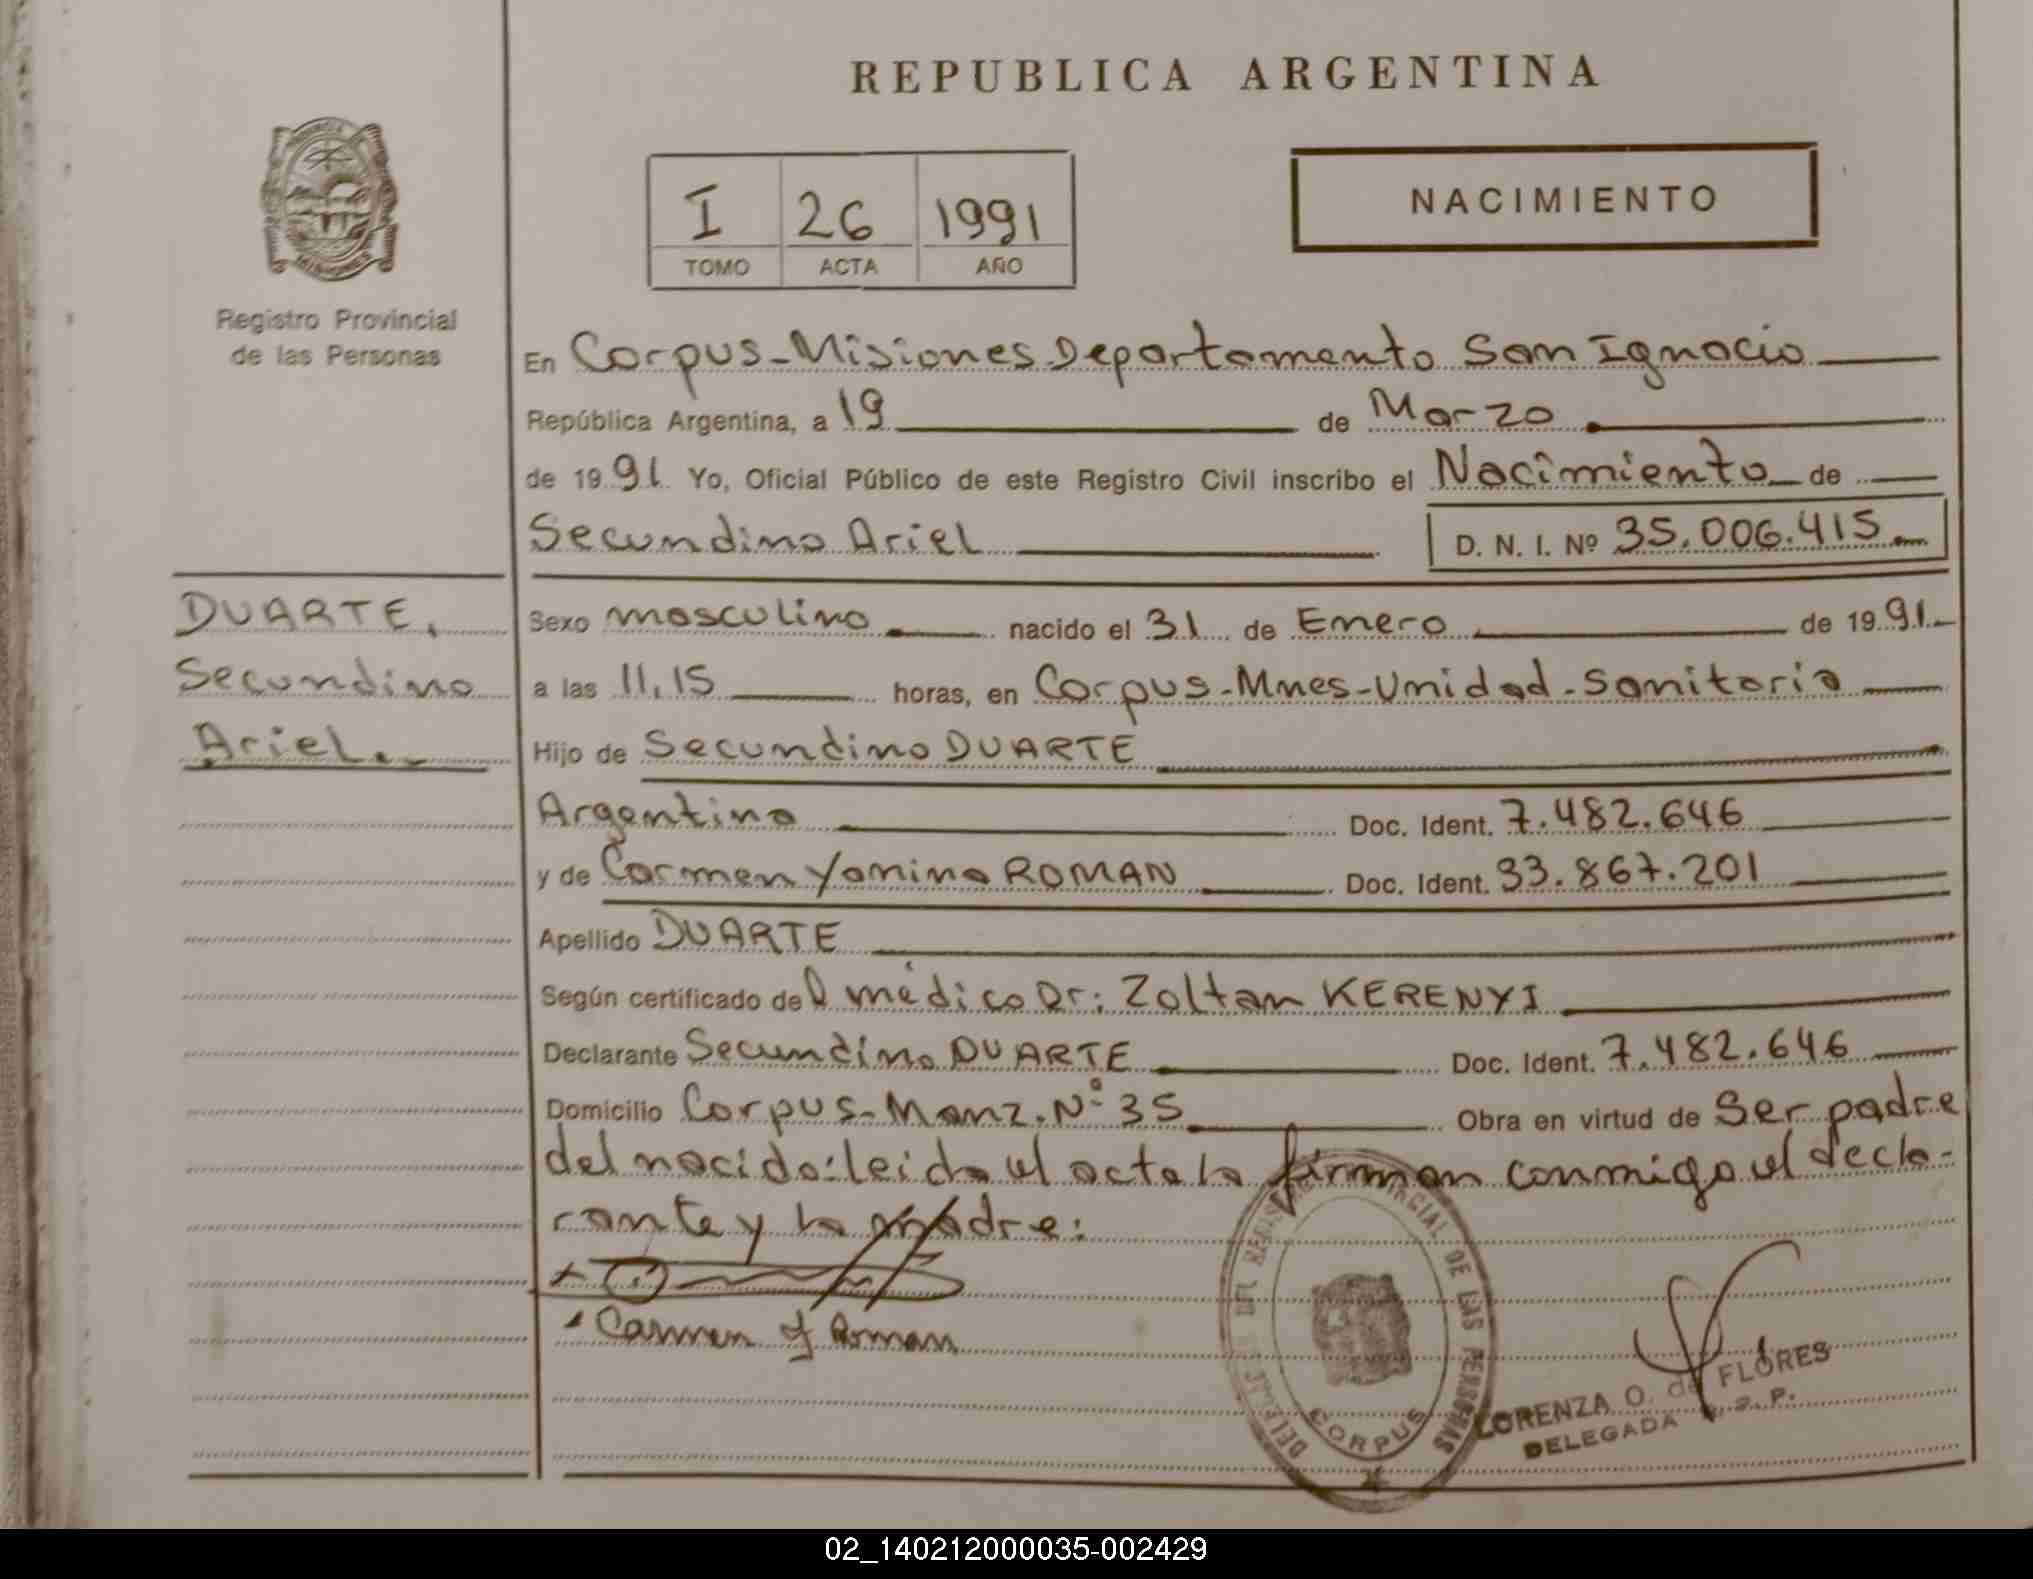 REPUBLICA ARGENTINA
NACIMIENTO
I 26 1991
TOMO ACTA AÑO
Registro Provincial
de las Personas
En Corpus-Misiones-Departamento San Ignacio
República Argentina, a 19 de Marzo
de 1991 Yo, Oficial Público de este Registro Civil inscribo el Nacimiento de
Secundino Ariel D. N. I. Nº 35.006.415
DUARTE,
Secundino
Ariel.
Sexo masculino nacido el 31 de Enero de 1991
a las 11,15 horas, en Corpus-Mnes-Unidad-Sanitaria
Hijo de Secundino DUARTE
Argentino Doc. Ident. 7.482.646
y de Carmen Yanina ROMAN Doc. Ident. 33.867.201
Apellido DUARTE
Según certificado del médico Dr: Zoltan KERENYI
Declarante Secundino DUARTE Doc. Ident. 7.482.646
Domicilio Corpus-Manz. Nº 35 Obra en virtud de Ser padre
del nacido: leida el acta la firman conmigo el decla-
rante y la madre:
Carmen Y Roman
REGISTRO PROVINCIAL DE LAS PERSONAS
CORPUS
LORENZA O. de FLORES
DELEGADA R. P. P.
02_140212000035-002429